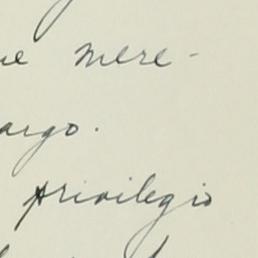 ue mere-
argo.
privilegio